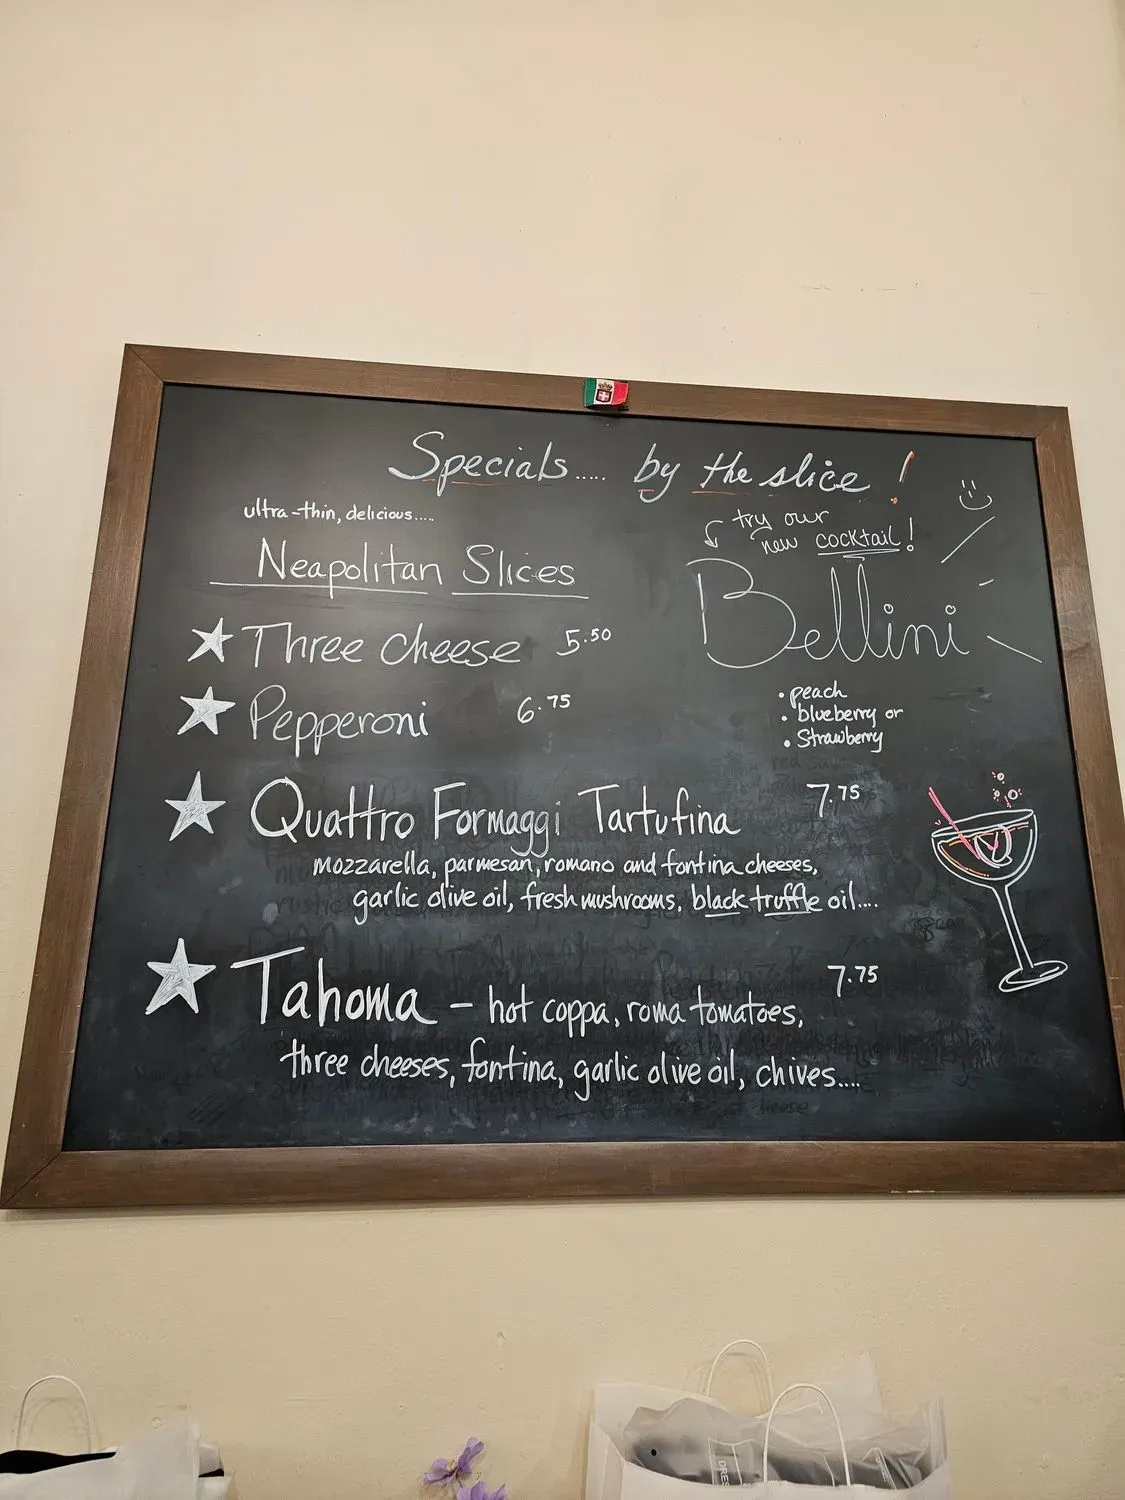 Specials..... by the slice!
ultra-thin, delicious.....
Neapolitan Slices
try our
new cocktail!
Bellini
Three cheese 5.50
Pepperoni 6.75
• peach
• blueberry or
• Strawberry
Quattro Formaggi Tartufina 7.75
mozzarella, parmesan, romano and fontina cheeses,
garlic olive oil, fresh mushrooms, black truffle oil....
Tahoma - hot coppa, roma tomatoes, 7.75
three cheeses, fontina, garlic olive oil, chives....